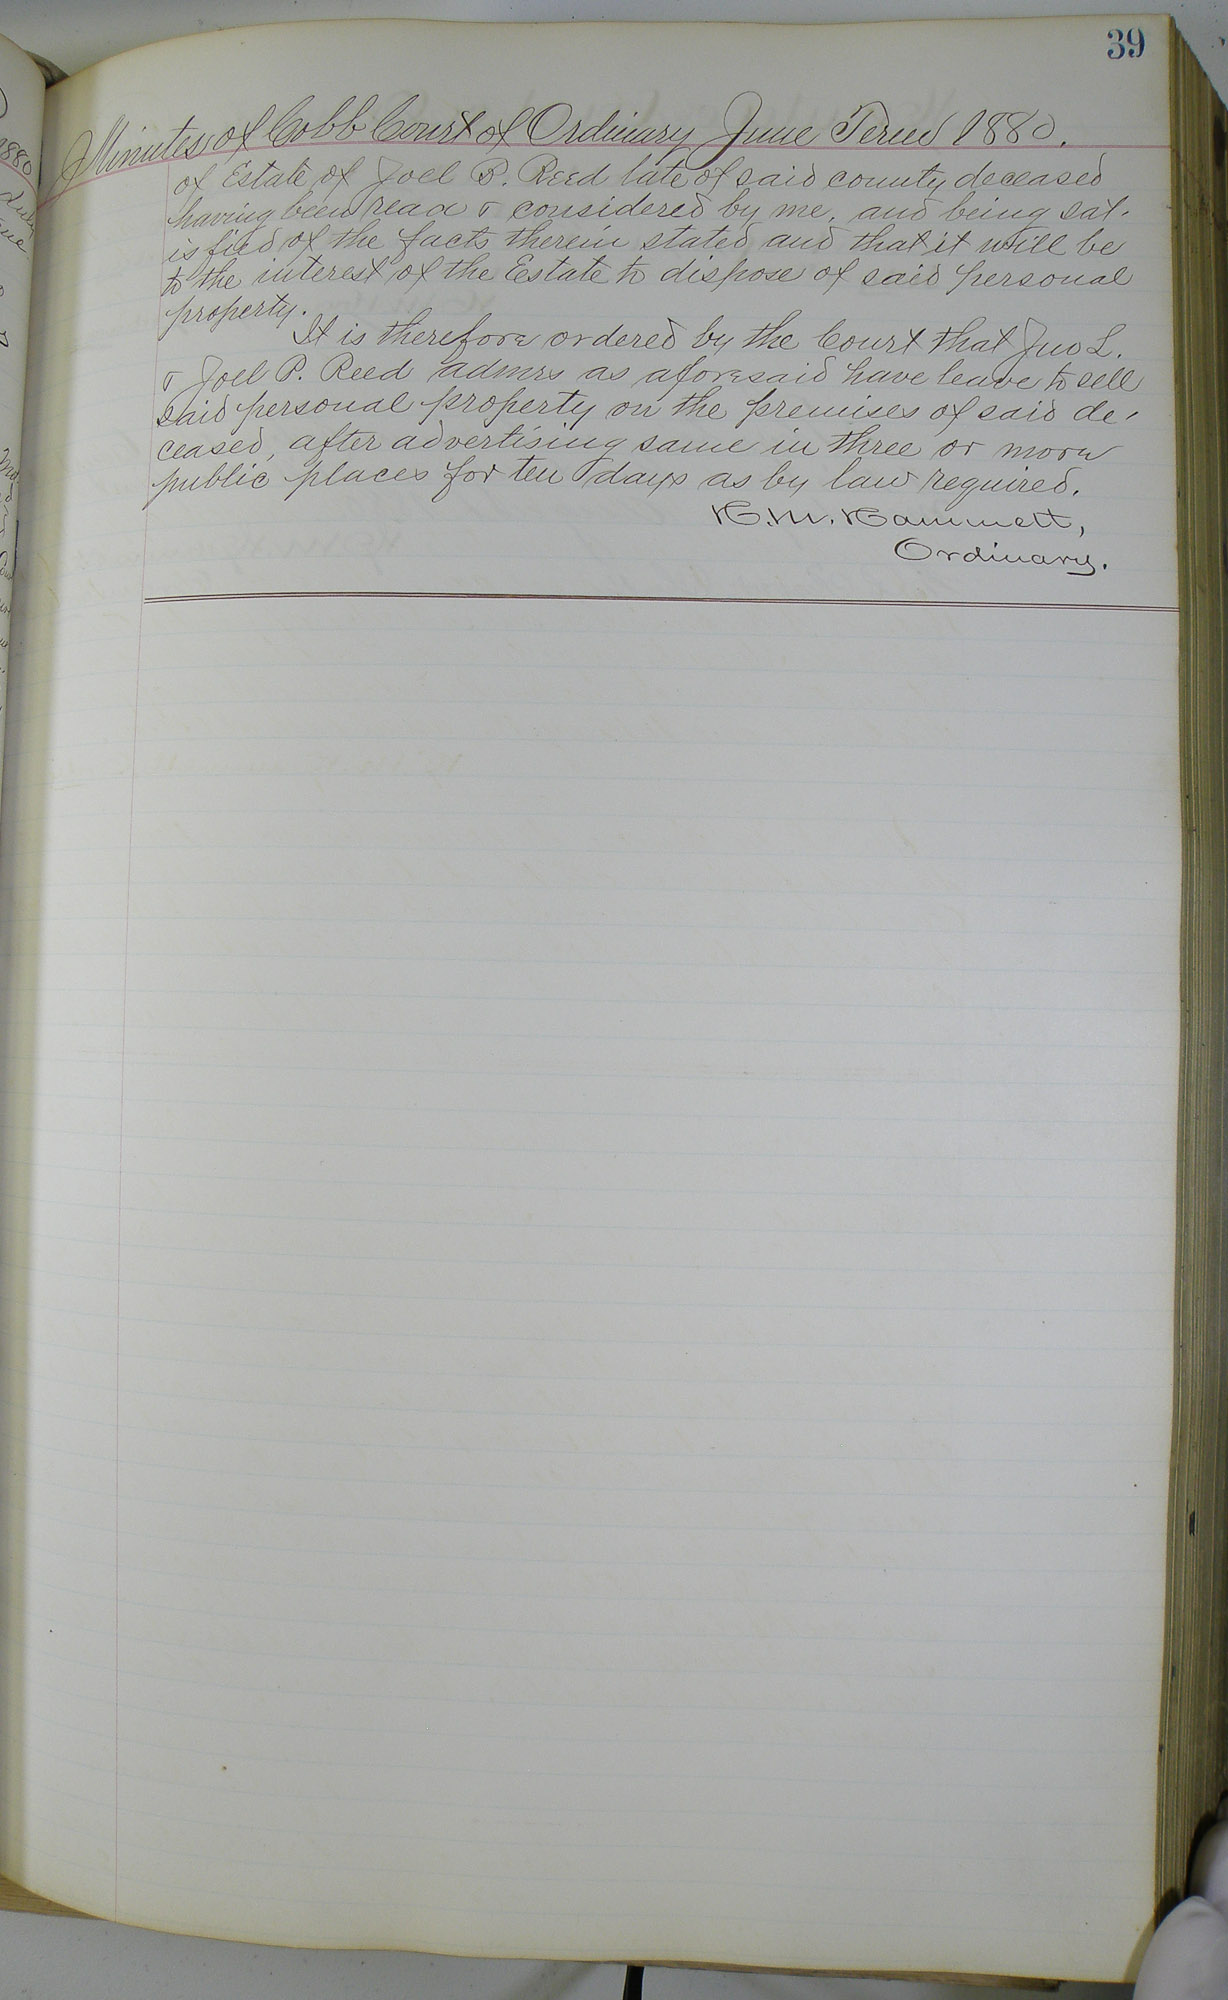 39
Minutes of Cobb Court of Ordinary June Term 1880.
of Estate of Joel B. Reed late of said county deceased
having been read & considered by me, and being sat-
isfied of the facts therein stated and that it will be
to the interest of the Estate to dispose of said personal
property.
It is therefore ordered by the Court that Jno L.
& Joel P. Reed admrs as aforesaid have leave to sell
said personal property on the premises of said de-
ceased, after advertising same in three or more
public places for ten days as by law required.
H. M. Hammett,
Ordinary.